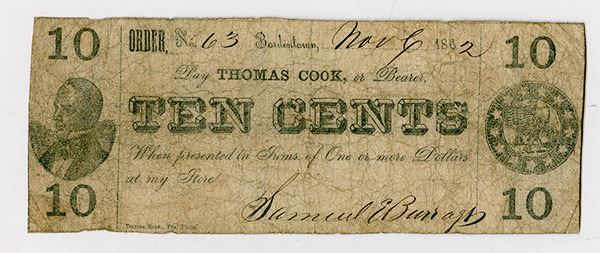 10 ORDER, No. 63 Bordentown, Nov 6 1862 10
Pay THOMAS COOK, or Bearer,
TEN CENTS
When presented in Sums of One or more Dollars
at my Store
10 Samuel E Burr 10